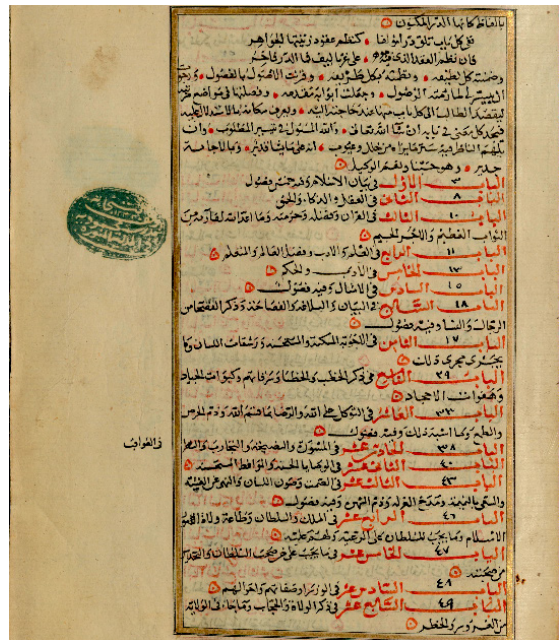 بالفاظ كانها الدر المكنون
ففي كل باب تلق در مؤلفا كنظم عقود زينتها الجواهر
فان نظم العقد الذي فيه جوهر على غير تاليف فما الدر فاخر
وضمنته كل لطيفه ونظمته بكل ظريفه وقرنت الاصول بالفصول ورجوت
الوصول وجعلت ابوابه مقدمه وفصلتها في مواضع
ليقصد الطالب الى كل باب منها عند حاجته اليه ويعرف مكانه بالاستدلال عليه
فيجد كل معنى في بابه ان شا الله تعالى والله المسئول في تيسير المطلوب وان
يلهم الناظر فيه ستر ما يراه من خلل وعيوب انه على ما يشا قدير وبالاجابة
جدير وهو حسبنا ونعم الوكيل
الباب ٣ الاول في مباني الاسلام وفيه خمس فصول
الباب ٨ الثاني في العقل والذكاء والحمق
الباب ١٠ الثالث في القران وفضله وحرمته وما اعد الله لقاريه من
الثواب العظيم والاجر الجسيم
الباب ١١ الرابع في العلم والادب وفضل العالم والمتعلم
الباب ١٣ الخامس في الاداب والحكم
الباب ١٥ السادس في الامثال وفيه فصول
الباب ١٨ السابع في البيان والبلاغة والفصاحة وذكر الفصحا من
الرجال والنسا وفيه فصول
الباب ١٧ الثامن في الاجوبة المسكتة والمستحسنة ورشقات اللسان وما
يجري مجرى ذلك
الباب ٢٩ التاسع في ذكر الخطب والخطبا والشعرا وسرقاتهم وكبوات الجياد
وهفوات الامجاد
الباب ٣٣ العاشر في التوكل على الله والرضا بما قسم الله وذم الحرص
والطمع وما اشبه ذلك وفيه فصول
الباب ٣٨ الحادي عشر في المشورة والنصيحة والتجارب والنظر
في العواقب
الباب ٤٠ الثاني عشر في الوصايا الحسنة والمواعظ المستحسنة
الباب ٤٣ الثالث عشر في الصمت وصون اللسان والنهي عن الغيبة
والسعي بالنميمة ومدح العزلة وذم الشهرة وفيه فصول
الباب ٤٦ الرابع عشر في الملك والسلطان وطاعة ولاة امور
الاسلام وما يجب للسلطان على الرعية وما لهم عليه
الباب ٤٧ الخامس عشر فيما يجب على من صحب السلطان والتحذير
من صحبته
الباب ٤٨ السادس عشر في الوزرا وصفاتهم واحوالهم
الباب ٤٩ السابع عشر في ذكر الولاة والحجاب وما جاء في الولاية
من الغرور والخطر